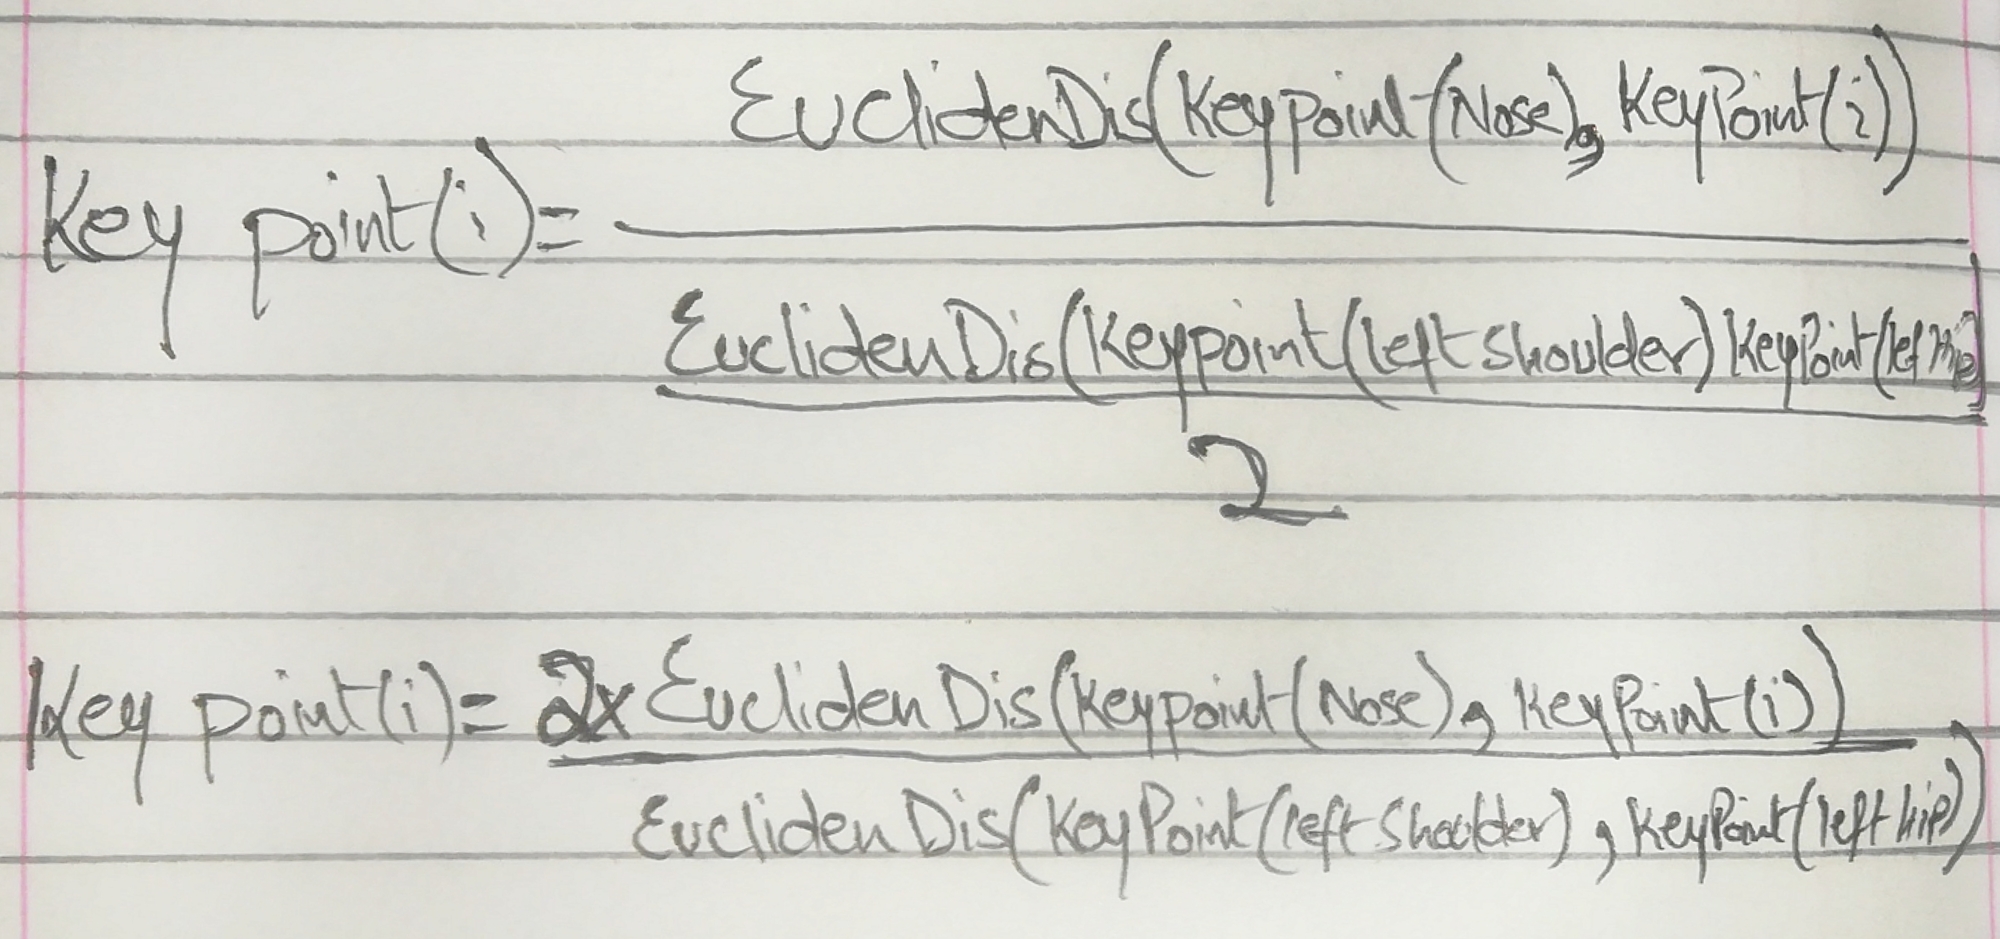 EuclidenDis(Keypoint(Nose), KeyPoint(i))
Key point(i)=
EuclidenDis(Keypoint(left shoulder) KeyPoint(lef Hip)
2
Key point(i)= 2x Eucliden Dis(Keypoint(Nose), KeyPoint(i))
Eucliden Dis(KeyPoint(left Shoulder), KeyPoint(left hip))